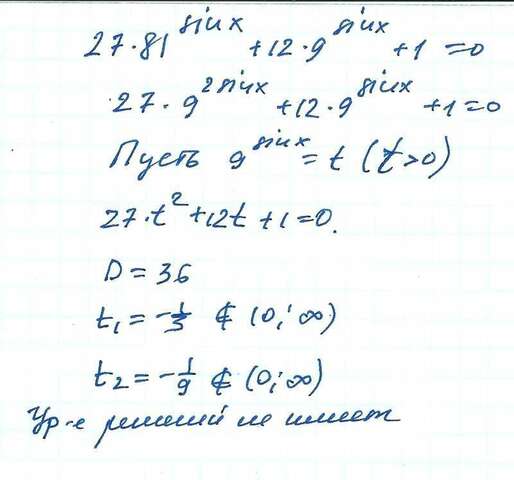 27·81^sinx + 12·9^sinx + 1 = 0
27·9^2sinx + 12·9^sinx + 1 = 0
Пусть 9^sinx = t (t>0)
27·t² + 12t + 1 = 0.
D = 36
t₁ = -1/3 ∉ (0; ∞)
t₂ = -1/9 ∉ (0; ∞)
Ур-е решений не имеет